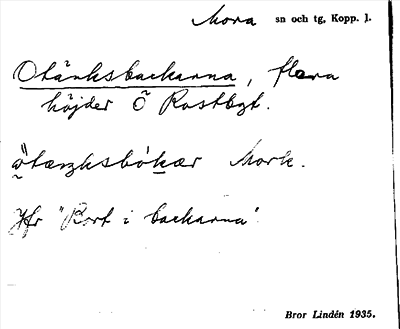 Mora sn och tg, Kopp. l.
Otänksbackarna, flera
höjder Ö Rostbgt.
Mork.
Jfr "Kort i backarna".
Bror Lindén 1935.